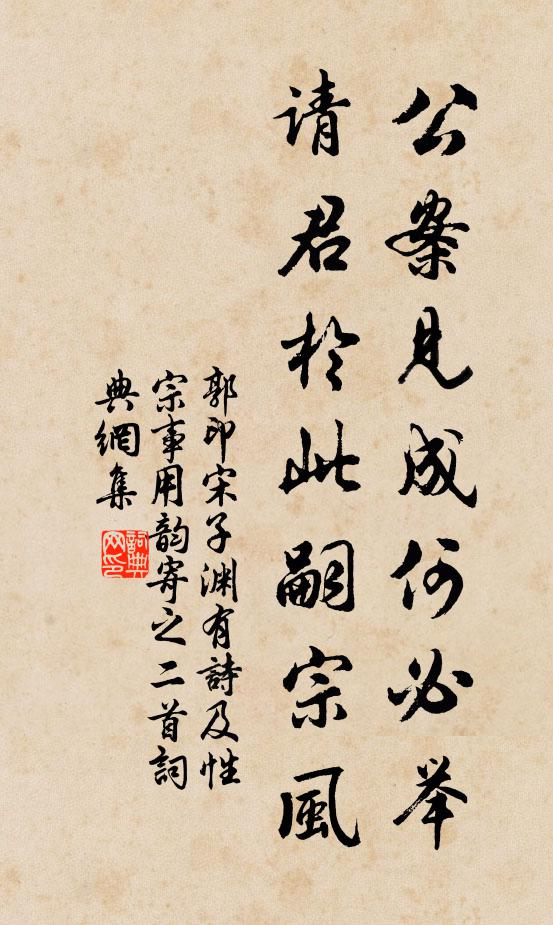 公案見成何必举
请君於此嗣宗風
郭印宋子渊有詩及性
宗事用韵寄之二首詞
典網集
詞典
网印